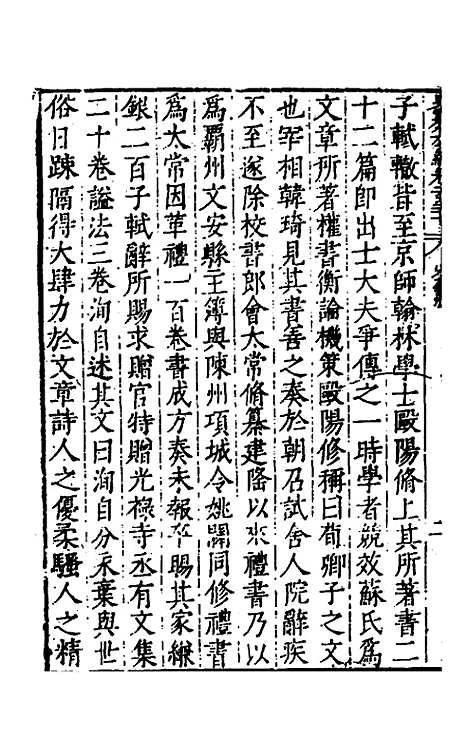 子軾轍皆至京師翰林學士歐陽脩上其所著書二
十二篇即出士大夫爭傳之一時學者競效蘇氏爲
文章所著權書衡論機策歐陽修稱曰荀卿子之文
也宰相韓琦見其書善之奏於朝召試舍人院辭疾
不至遂除校書郎會太常脩纂建隆以來禮書乃以
爲霸州文安縣主簿與陳州項城令姚闢同修禮書
爲太常因革禮一百卷書成方奏未報卒賜其家縑
銀二百子軾辭所賜求贈官特贈光祿寺丞有文集
二十卷謚法三卷洵自述其文曰洵自分永棄與世
俗日踈隔得大肆力於文章詩人之優柔騷人之精